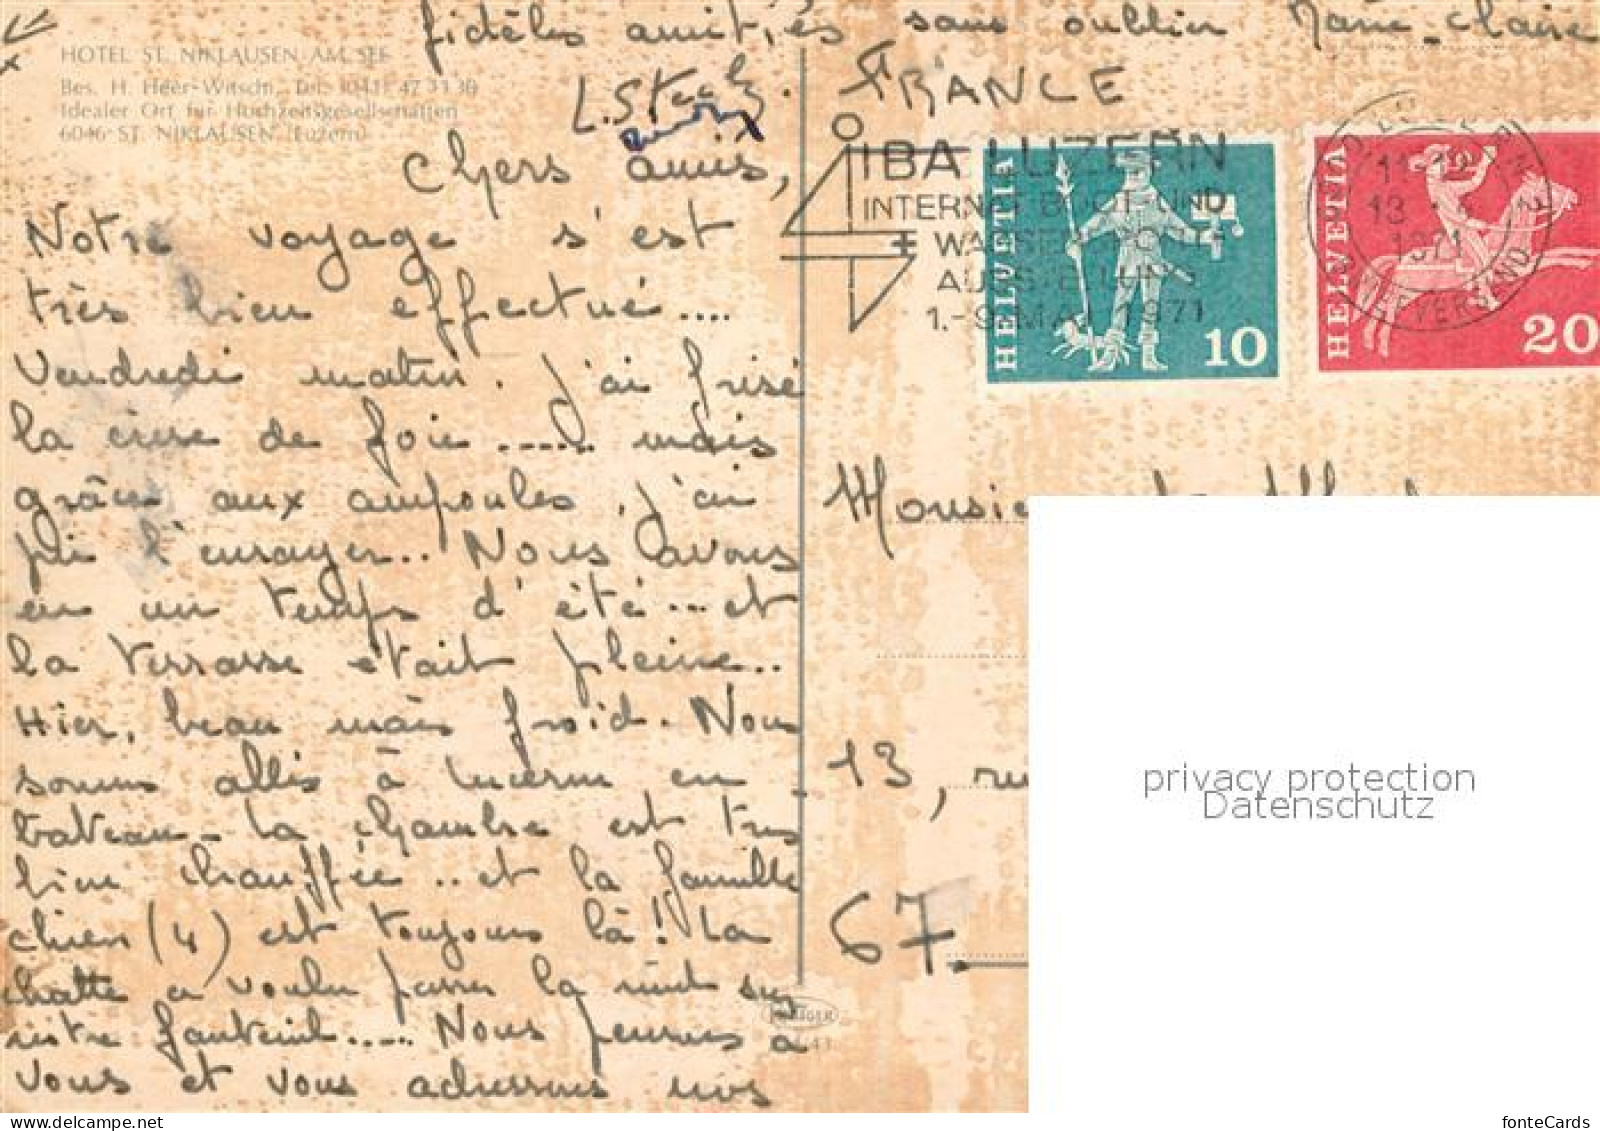 fidèles amitiés sans oublier Marie-Claire
HOTEL ST. NIKLAUSEN AM SEE
Bes. H. Heer-Witschi, Tel. (041) 47 11 30
Idealer Ort für Hochzeitsgesellschaften
6046 ST. NIKLAUSEN (Luzern)
Chers amis,
Notre voyage s'est
très bien effectué....
Vendredi matin. j'ai frisé
la crise de foie ...... mais
grâce aux ampoules, j'ai
pu l'enrayer.. Nous avons
eu un temps d'été... et
la terrasse était pleine..
Hier, beau mais froid. Nous
sommes allés à Lucerne en
bateau. La chambre est très
bien chauffée .. et la famille
chien (4) est toujours là! La
chatte a voulu passer la nuit sur
notre fauteuil..... Nous pensons à
vous et vous adressons nos
FRANCE
IBA LUZERN
INTERNAT. BOOT- UND
+ WASSERSPORT-
AUSSTELLUNG
1.-9. MAI 1971
HELVETIA
10
HELVETIA
20
13
1971
VERSAND
13, ru
67.
privacy protection
Datenschutz
fonteCards www.delcampe.net